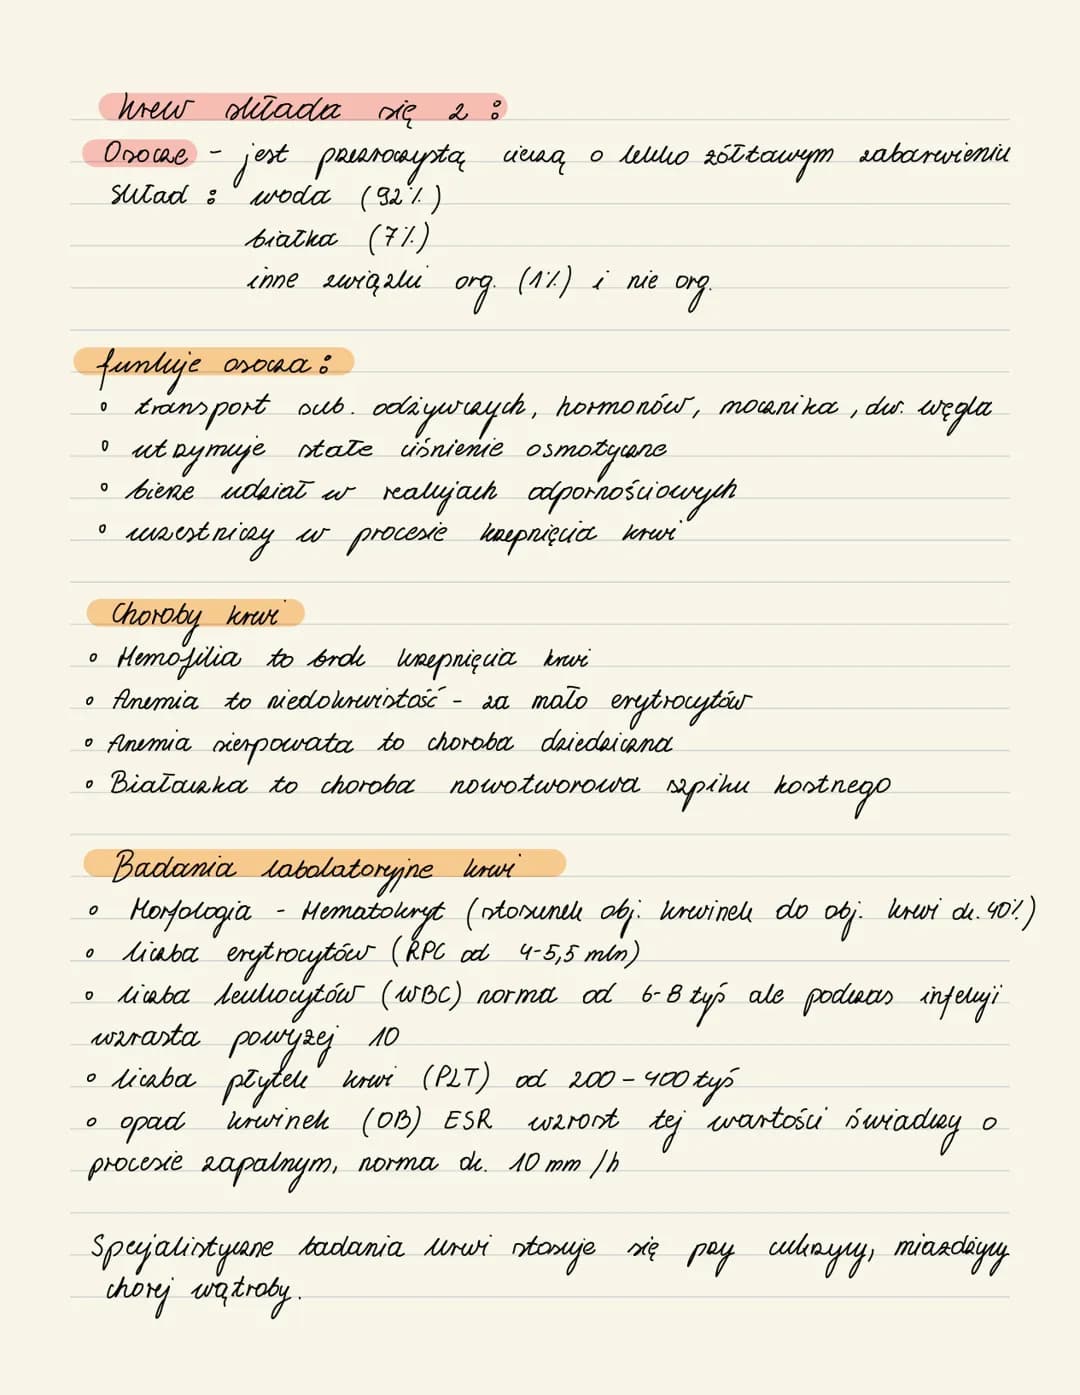 krew składa się z :
Osocze - jest przezroczystą cieczą o lekko żółtawym zabarwieniu
Skład : woda (92%)
białka (7%)
inne związki org. (1%) i nie org.
funkcje osocza :
• transport sub. odżywczych, hormonów, mocznika, dw. węgla
• utrzymuje stałe ciśnienie osmotyczne
• bierze udział w reakcjach odpornościowych
• uczestniczy w procesie krzepnięcia krwi
Choroby krwi
• Hemofilia to brak krzepnięcia krwi
• Anemia to niedokrwistość - za mało erytrocytów
• Anemia sierpowata to choroba dziedziczna
• Białaczka to choroba nowotworowa szpiku kostnego
Badania labolatoryjne krwi
• Morfologia - Hematokryt (stosunek obj. krwinek do obj. krwi ok. 40%)
• liczba erytrocytów (RPC od 4-5,5 mln)
• liczba leukocytów (WBC) norma od 6-8 tyś ale podczas infekcji
wzrasta powyżej 10
• liczba płytek krwi (PLT) od 200-400 tyś
• opad krwinek (OB) ESR wzrost tej wartości świadczy o
procesie zapalnym, norma ok. 10 mm/h
Specjalistyczne badania krwi stosuje się przy cukrzycy, miażdżycy
chorej wątroby.